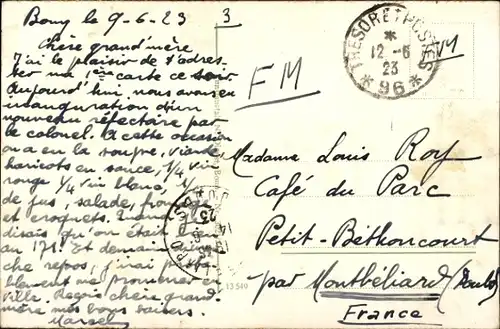 Bony le 9-6-23
Chère grand'mère
J'ai le plaisir de t'adres-
ser ma 1ère carte ce soir
Aujourd'hui, nous avons eu
inauguration d'un
nouveau réfectoire par
le colonel. A cette occasion
on a eu la soupe, viande
haricots en sauce, 1/4 vin
rouge 1/4 vin blanc, 1/
de jus, salade, fromage
et croquets.
disais qu'on était
au 171! Et demain
che repos, j'irai
blement me promener en
ville. Reçois chère grand
mère mes bons baisers.
Marcel
3
FM
TRESOR ET POSTES
*
12-6
23
* 96 *
FM
Madame Louis Roy
Café du Parc
Petit-Béthoncourt
par Montbéliard (Doubs)
France
13540